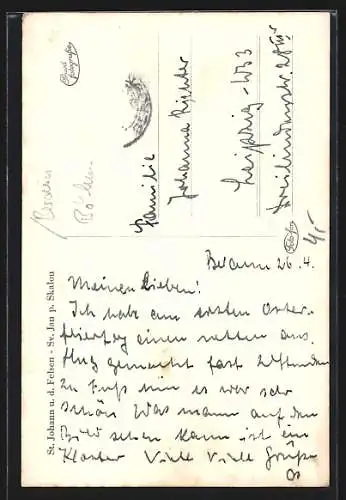 Echte
Fotografie
Böhmen
Familie
Johanna Richter
Leipzig - W33
St. Johann u. d. Felsen - Sv. Jan p. Skalou
4,-
Beraun 26.4.
Meinen Lieben!
Ich habe am ersten Oster-
feiertag einen netten aus
flug gemacht fast 2 Stunden
zu Fuß hin es war sehr
schön Was mann auf dem
Bild sehen kann ist ein
Kloster Viele Viele Grüße